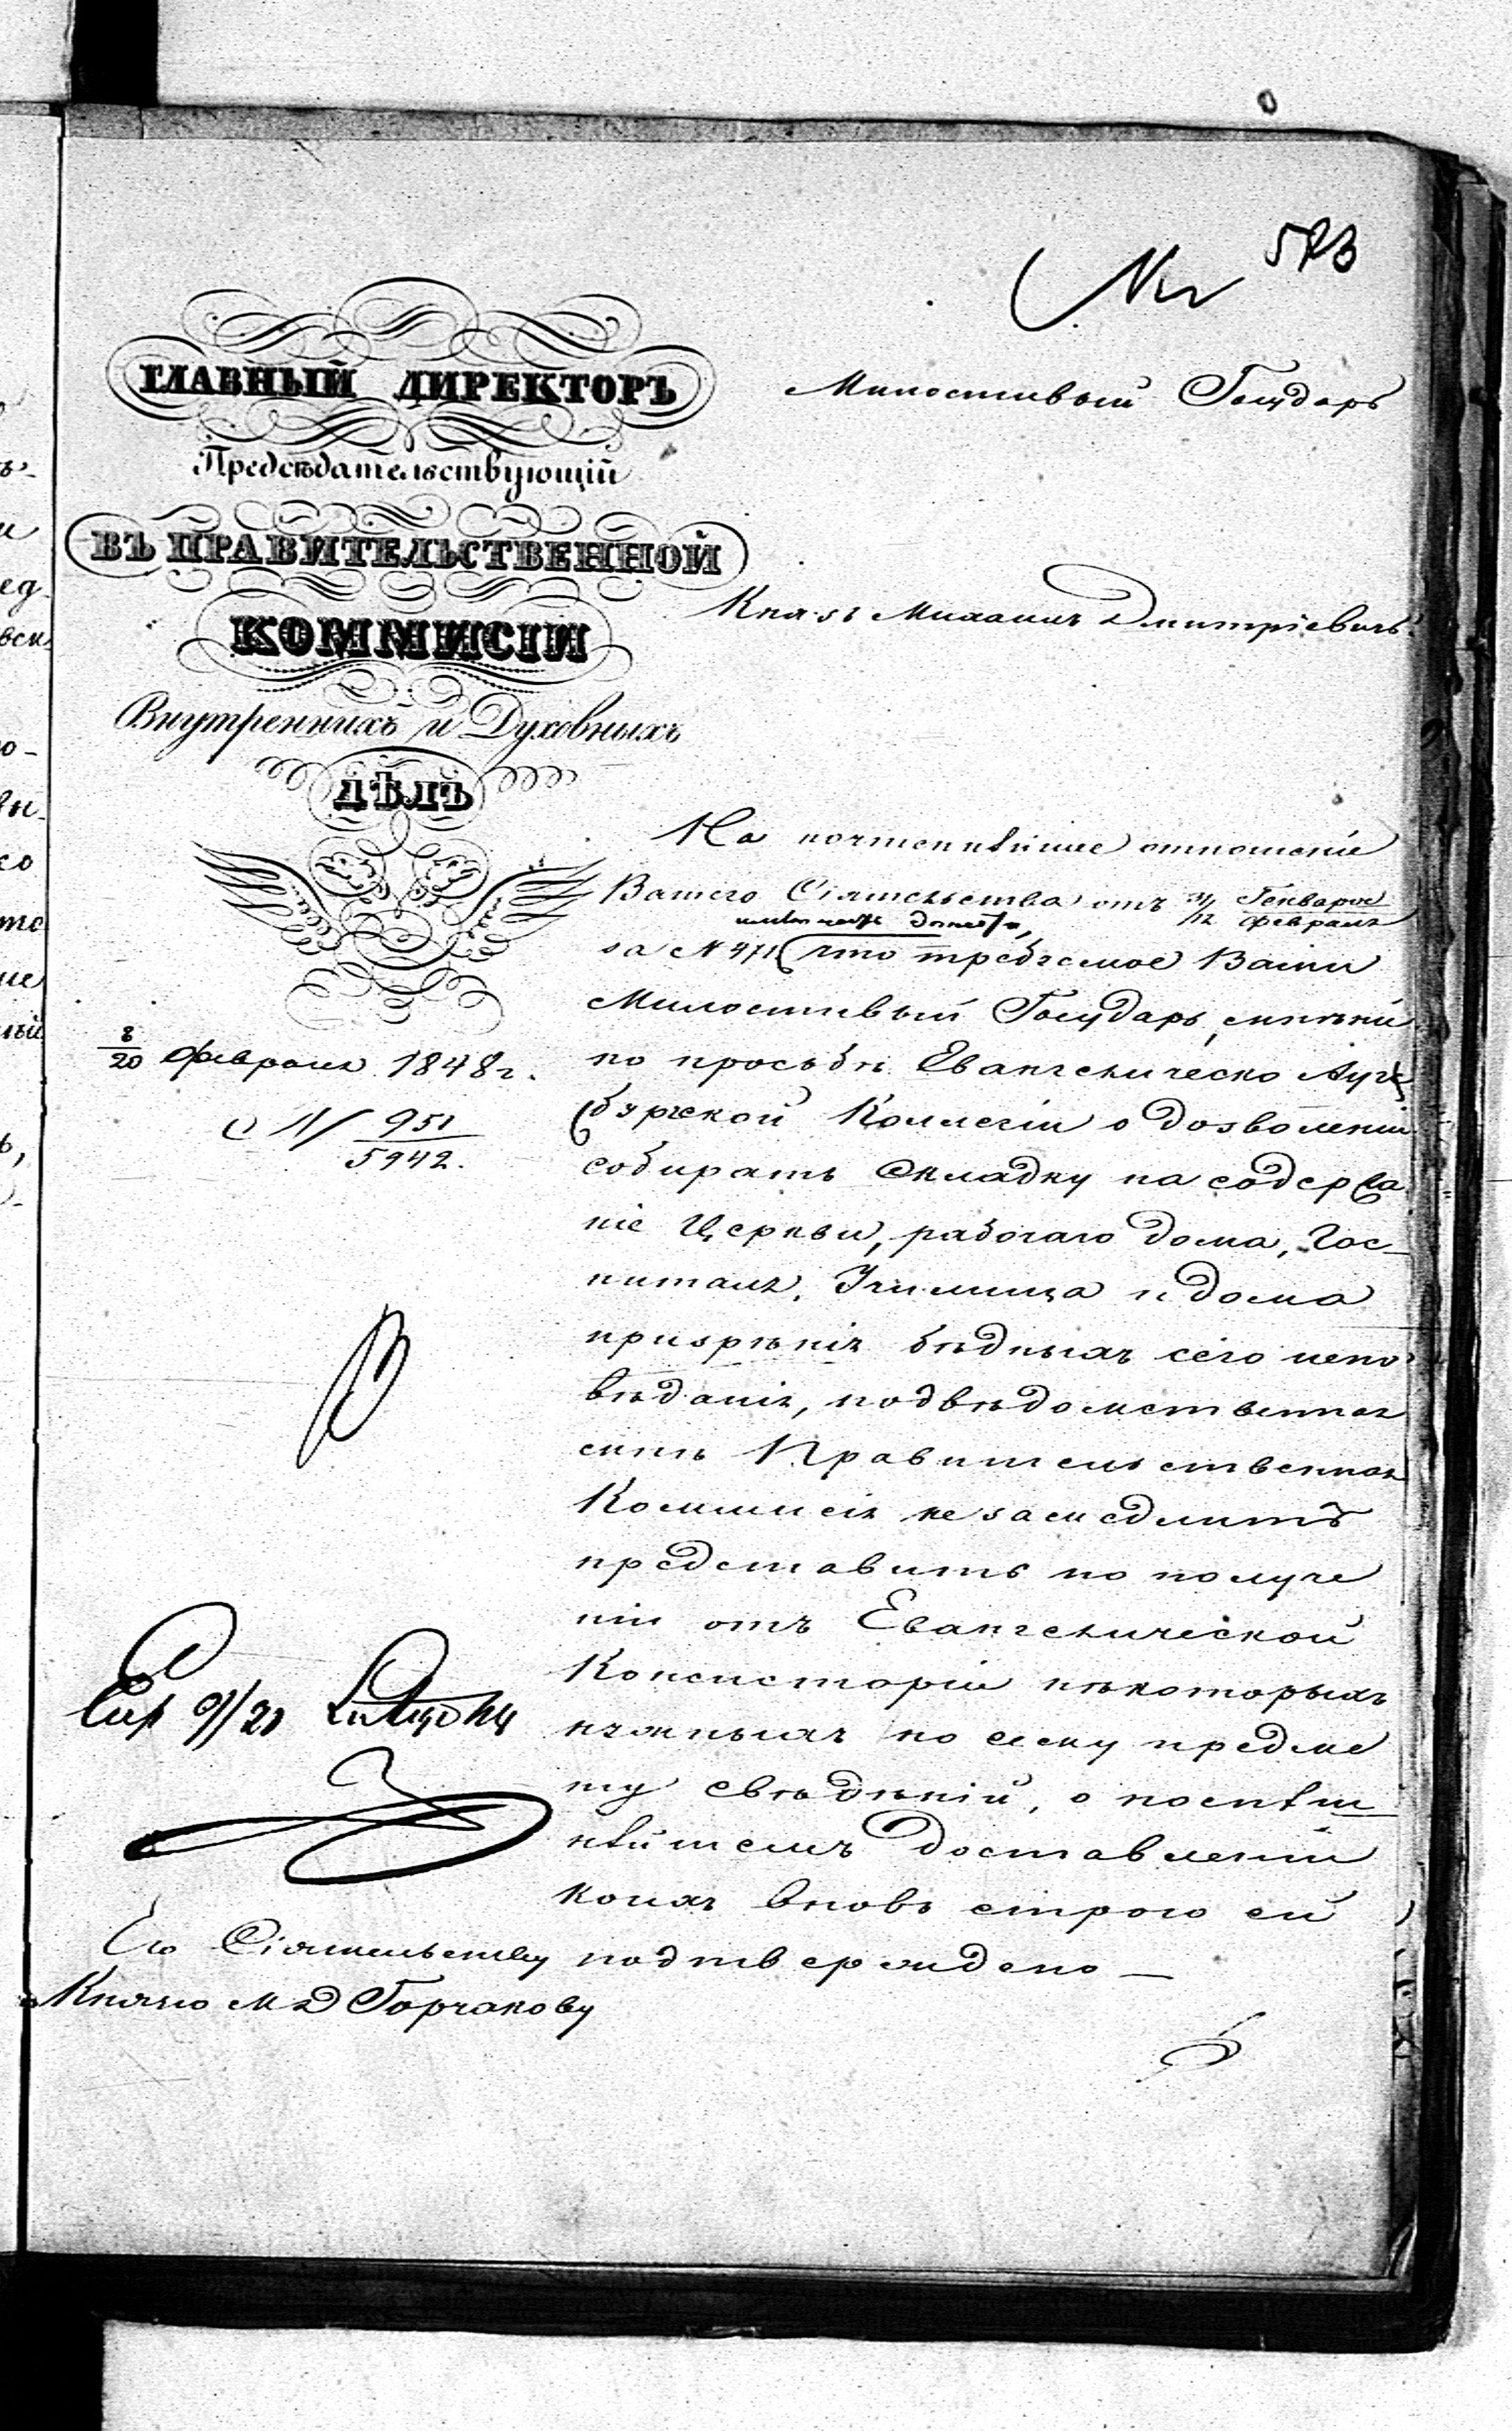 573
ГЛАВНЫЙ ДИРЕКТОРЪ
Предсѣдательствующій
ВЪ ПРАВИТЕЛЬСТВЕННОЙ
КОММИСІИ
Внутреннихъ и Духовныхъ
ДѢЛЪ
8/20 Февраля 1848 г.
№ 951/5942.
Милостивый Государь
Князь Михаилъ Дмитріевичь.
На почтеннѣйшее отношеніе
Вашего Сіятельства отъ 31/12 Генваря/Февраля
имѣю честь донести,
за № 471 что требуемое Вами
Милостивый Государь, мнѣніе
по просьбѣ Евангелическо Аугс
бургской Коллегіи о дозволеніи
собирать складку на содержа
ніе Церкви, рабочаго дома, Гос-
питаля, Училища и дома
призрѣнія бѣдныхъ сего испо
вѣданія, подвѣдомственная
мнѣ Правительственная
Коммисія не замедлитъ
представить по получе
ніи отъ Евангелической
Консисторіи нѣкоторыхъ
нужныхъ по сему предме
ту свѣдѣній, о поспѣш
нѣйшемъ доставленіи
коихъ вновь строго ей
подтверждено —
Его Сіятельству
Князю М Д Горчакову